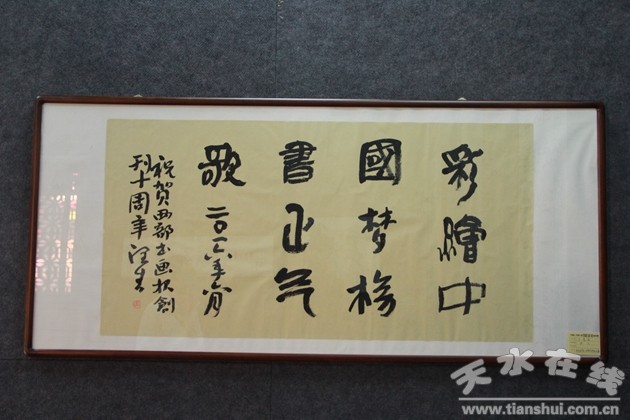 彩繪中
國梦榜
書正气
歌 二〇一六年
祝贺西部书画报創
刊十周年
天水在线
www.tianshui.com.cn